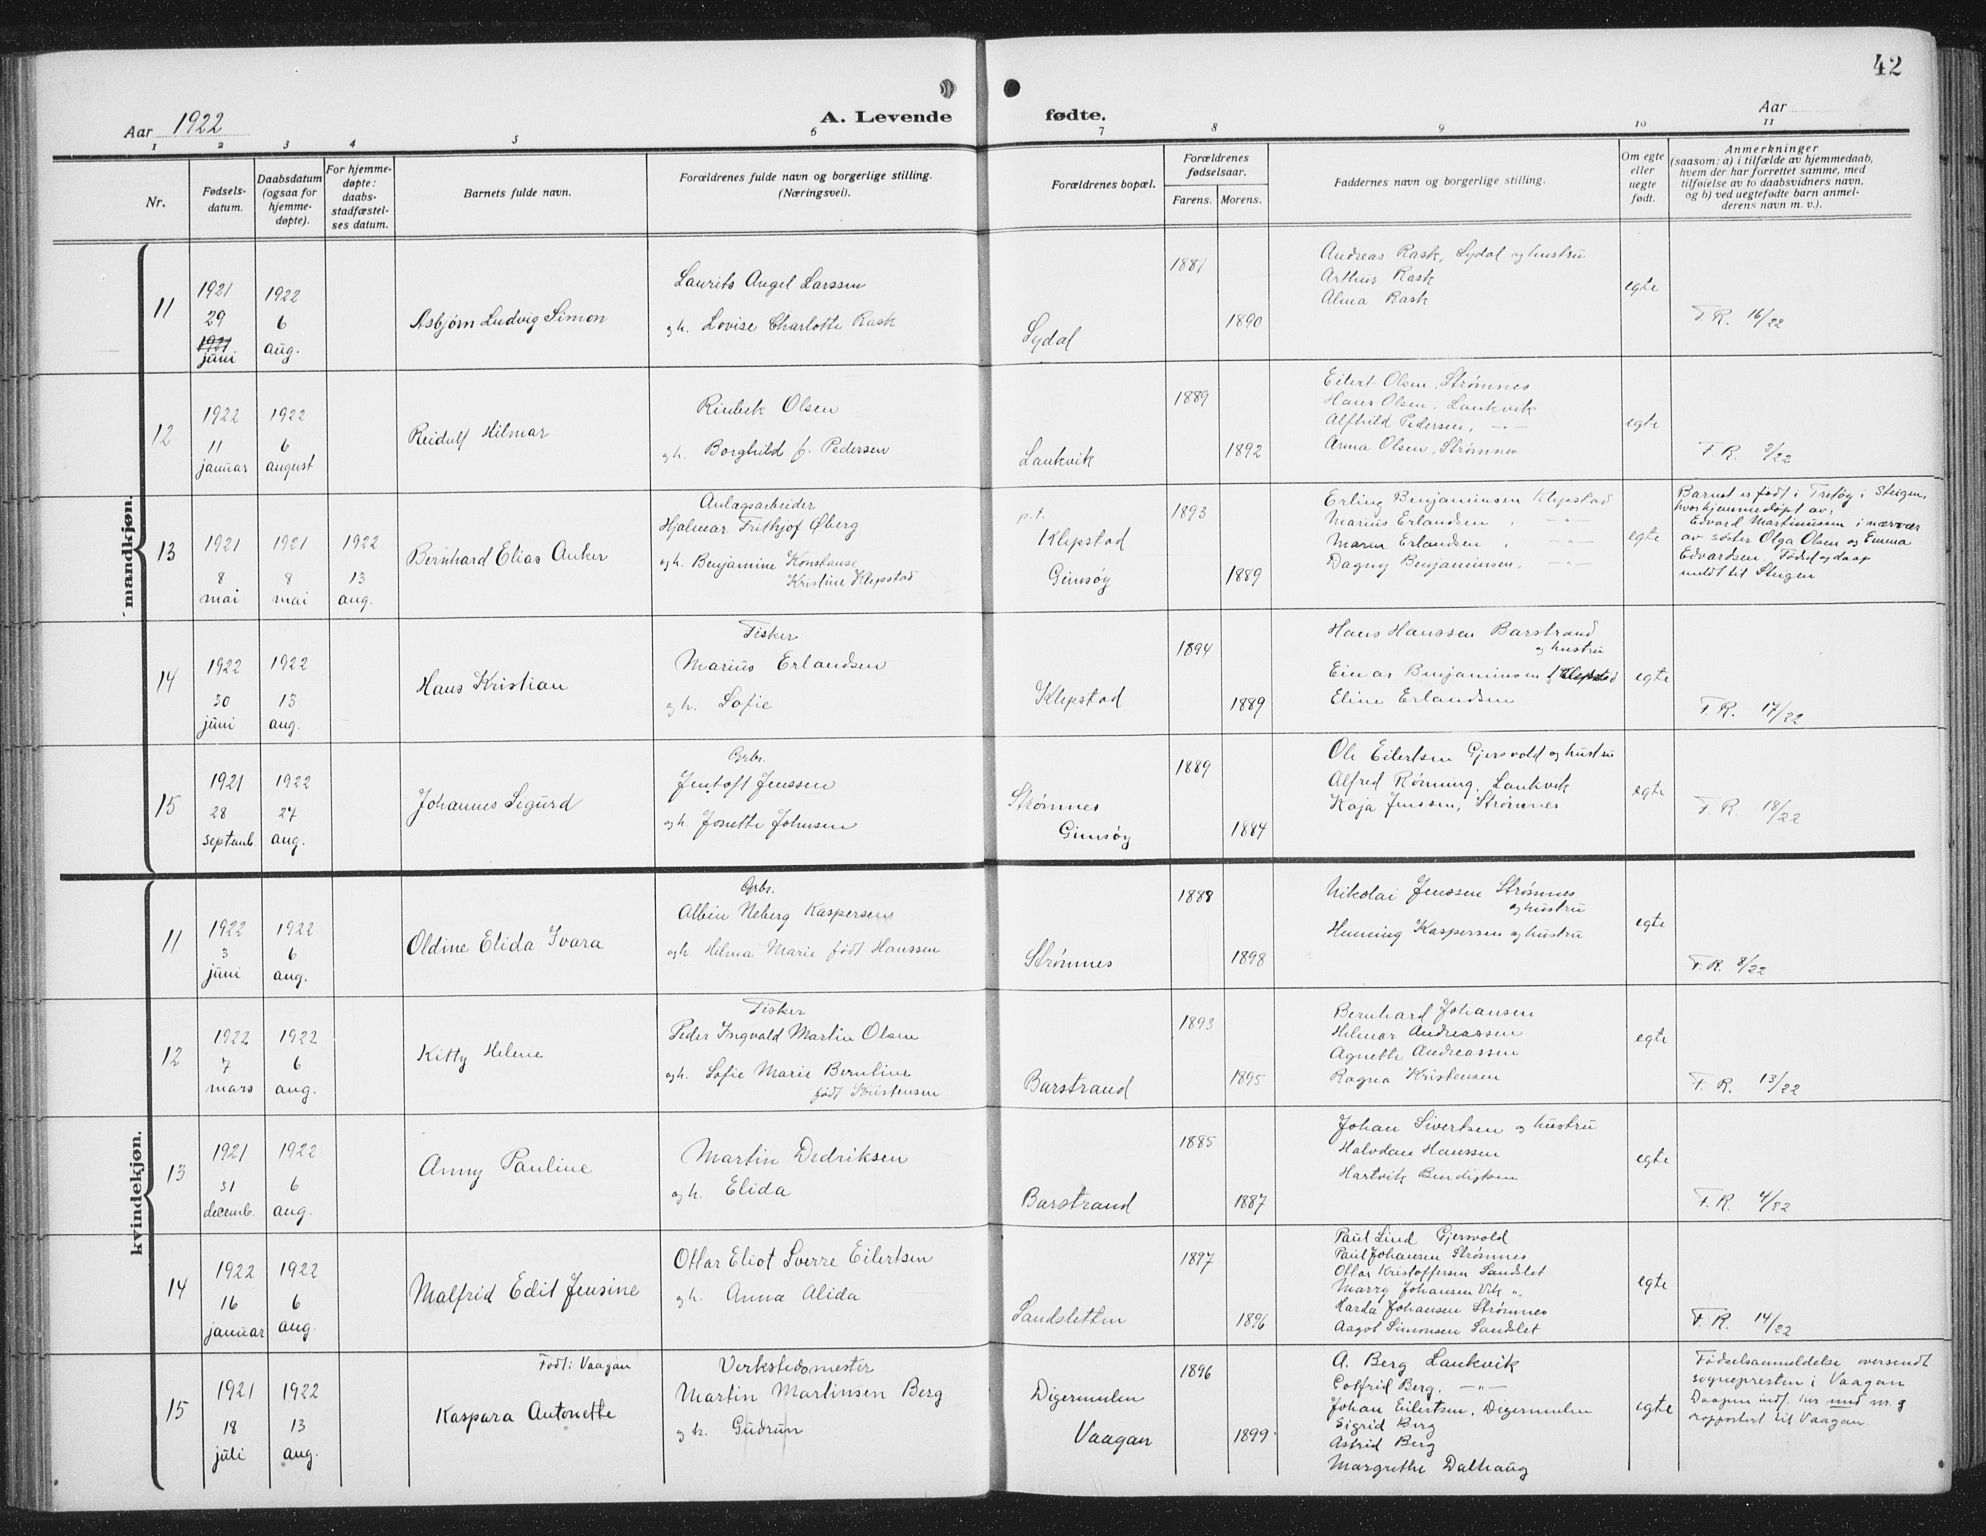 42
Aar 1922
A. Levende fødte.
Aar
1 2 3 4 5 6 7 8 9 10 11
Nr.
Fødsels-
datum.
Daabsdatum
(ogsaa for
hjemme-
døpte).
For hjemme-
døpte:
daabs-
stadfæstel-
ses datum.
Barnets fulde navn.
Forældrenes fulde navn og borgerlige stilling.
(Næringsvei).
Forældrenes bopæl.
Forældrenes
fødselsaar.
Farens. Morens.
Faddernes navn og borgerlige stilling.
Om egte
eller
uegte
født.
Anmerkninger
(saasom: a) i tilfælde av hjemmedaab,
hvem der har forrettet samme, med
tilføielse av to daabsvidners navn,
og b) ved uegtefødte barn anmel-
derens navn m. v.).
mandkjøn.
11
1921
29
1921
juni
1922
6
aug.
Asbjørn Ludvig Simon
Laurits Angel Larssen
og h. Lovise Charlotte Rask
Sydal
1881
1890
Andreas Rask, Sydal og hustru
Arthur Rask
Alma Rask
egte
F.R. 16/22
12
1922
11
januar
1922
6
august
Reidulf Hilmar
Rinbek Olsen
og h. Borghild f. Pedersen
Laukvik
1889
1892
Eilert Olsen, Strømnes
Hans Olsen, Laukvik
Alfhild Pedersen, -"-
Anna Olsen, Strømnes
egte
F.R. 2/22
13
1921
8
mai
1921
8
mai
1922
13
aug.
Bernhard Elias Anker
Anlagsarbeider
Hjalmar Frithjof Øberg
og h. Benjamine Konstanse
Kristine Klepstad
p.t.
Klepstad
Gimsøy
1893
1889
Erling Benjaminsen Klepstad
Marius Erlandsen, -"-
Marin Erlandsen, -"-
Dagny Benjaminsen, -"-
egte
Barnet er født i Tretøy i Steigen,
hvor hjemmedøpt av,
Edvard Martinussen i nærvær
av søster Olga Olsen og Emma
Edvardsen, Fødsel og daap
meldt til Steigen
14
1922
30
juni
1922
13
aug.
Hans Kristian
Fisker
Marius Erlandsen
og h. Sofie
Klepstad
1894
1889
Hans Hanssen Barstrand
og hustru
Einar Benjaminsen, Klepstad
Eline Erlandsen
egte
F.R. 17/22
15
1921
28
septemb.
1922
27
aug.
Johannes Sigurd
Grbr.
Jentoft Jenssen
og h. Jonette Johnsen
Strømnes
Gimsøy
1889
1884
Ole Eilertsen Gjersvold og hustru
Alfred Rønning, Laukvik
Kaja Jenssen, Strømnes
egte
F.R. 18/22
kvindekjøn.
11
1922
3
juni
1922
6
aug.
Oldine Elida Ivara
Grbr.
Albin Neberg Kaspersen
og h. Helma Marie født Hanssen
Strømnes
1888
1898
Nikolai Jenssen Strømnes
og hustru
Henning Kaspersen og hustru
egte
F.R. 8/22
12
1922
7
mars
1922
6
aug.
Kitty Helene
Fisker
Peder Ingvald Martin Olsen
og h. Sofie Marie Berntine
født Kristensen
Barstrand
1893
1895
Bernhard Johansen
Helmar Andreassen
Agnette Andreassen
Ragna Kristensen
egte
F.R. 13/22
13
1921
31
decemb.
1922
6
aug.
Anny Pauline
Martin Dedriksen
og h. Elida
Barstrand
1885
1887
Johan Sivertsen og hustru
Halvdan Hanssen
Hartvik Bendigtsen
egte
F.R. 4/22
14
1922
16
januar
1922
6
aug.
Malfrid Edit Jensine
Ottar Eliot Sverre Eilertsen
og h. Anna Alida
Sandsletten
1897
1896
Paul Lind Gjersvold
Paul Johansen Strømnes
Ottar Kristoffersen Sandslet
Marry Johansen Vik "
Harda Johansen Strømnes
Aagot Simonsen Sandslet
egte
F.R. 14/22
15
1921
18
juli
1922
13
aug.
Født i Vaagan
Kaspara Antonette
Verkstedsmester
Martin Martinsen Berg
og h. Gudrun
Digermulen
Vaagan
1896
1899
A. Berg Laukvik
Gotfrid Berg, -"-
Johan Eilertsen, Digermulen
Sigrid Berg
Astrid Berg
Margrethe Dalhaug
egte
Fødselsanmeldelse oversendt
sogneprestin i Vaagan
Daapen indf. her med nr. og
rapportert til Vaagan.